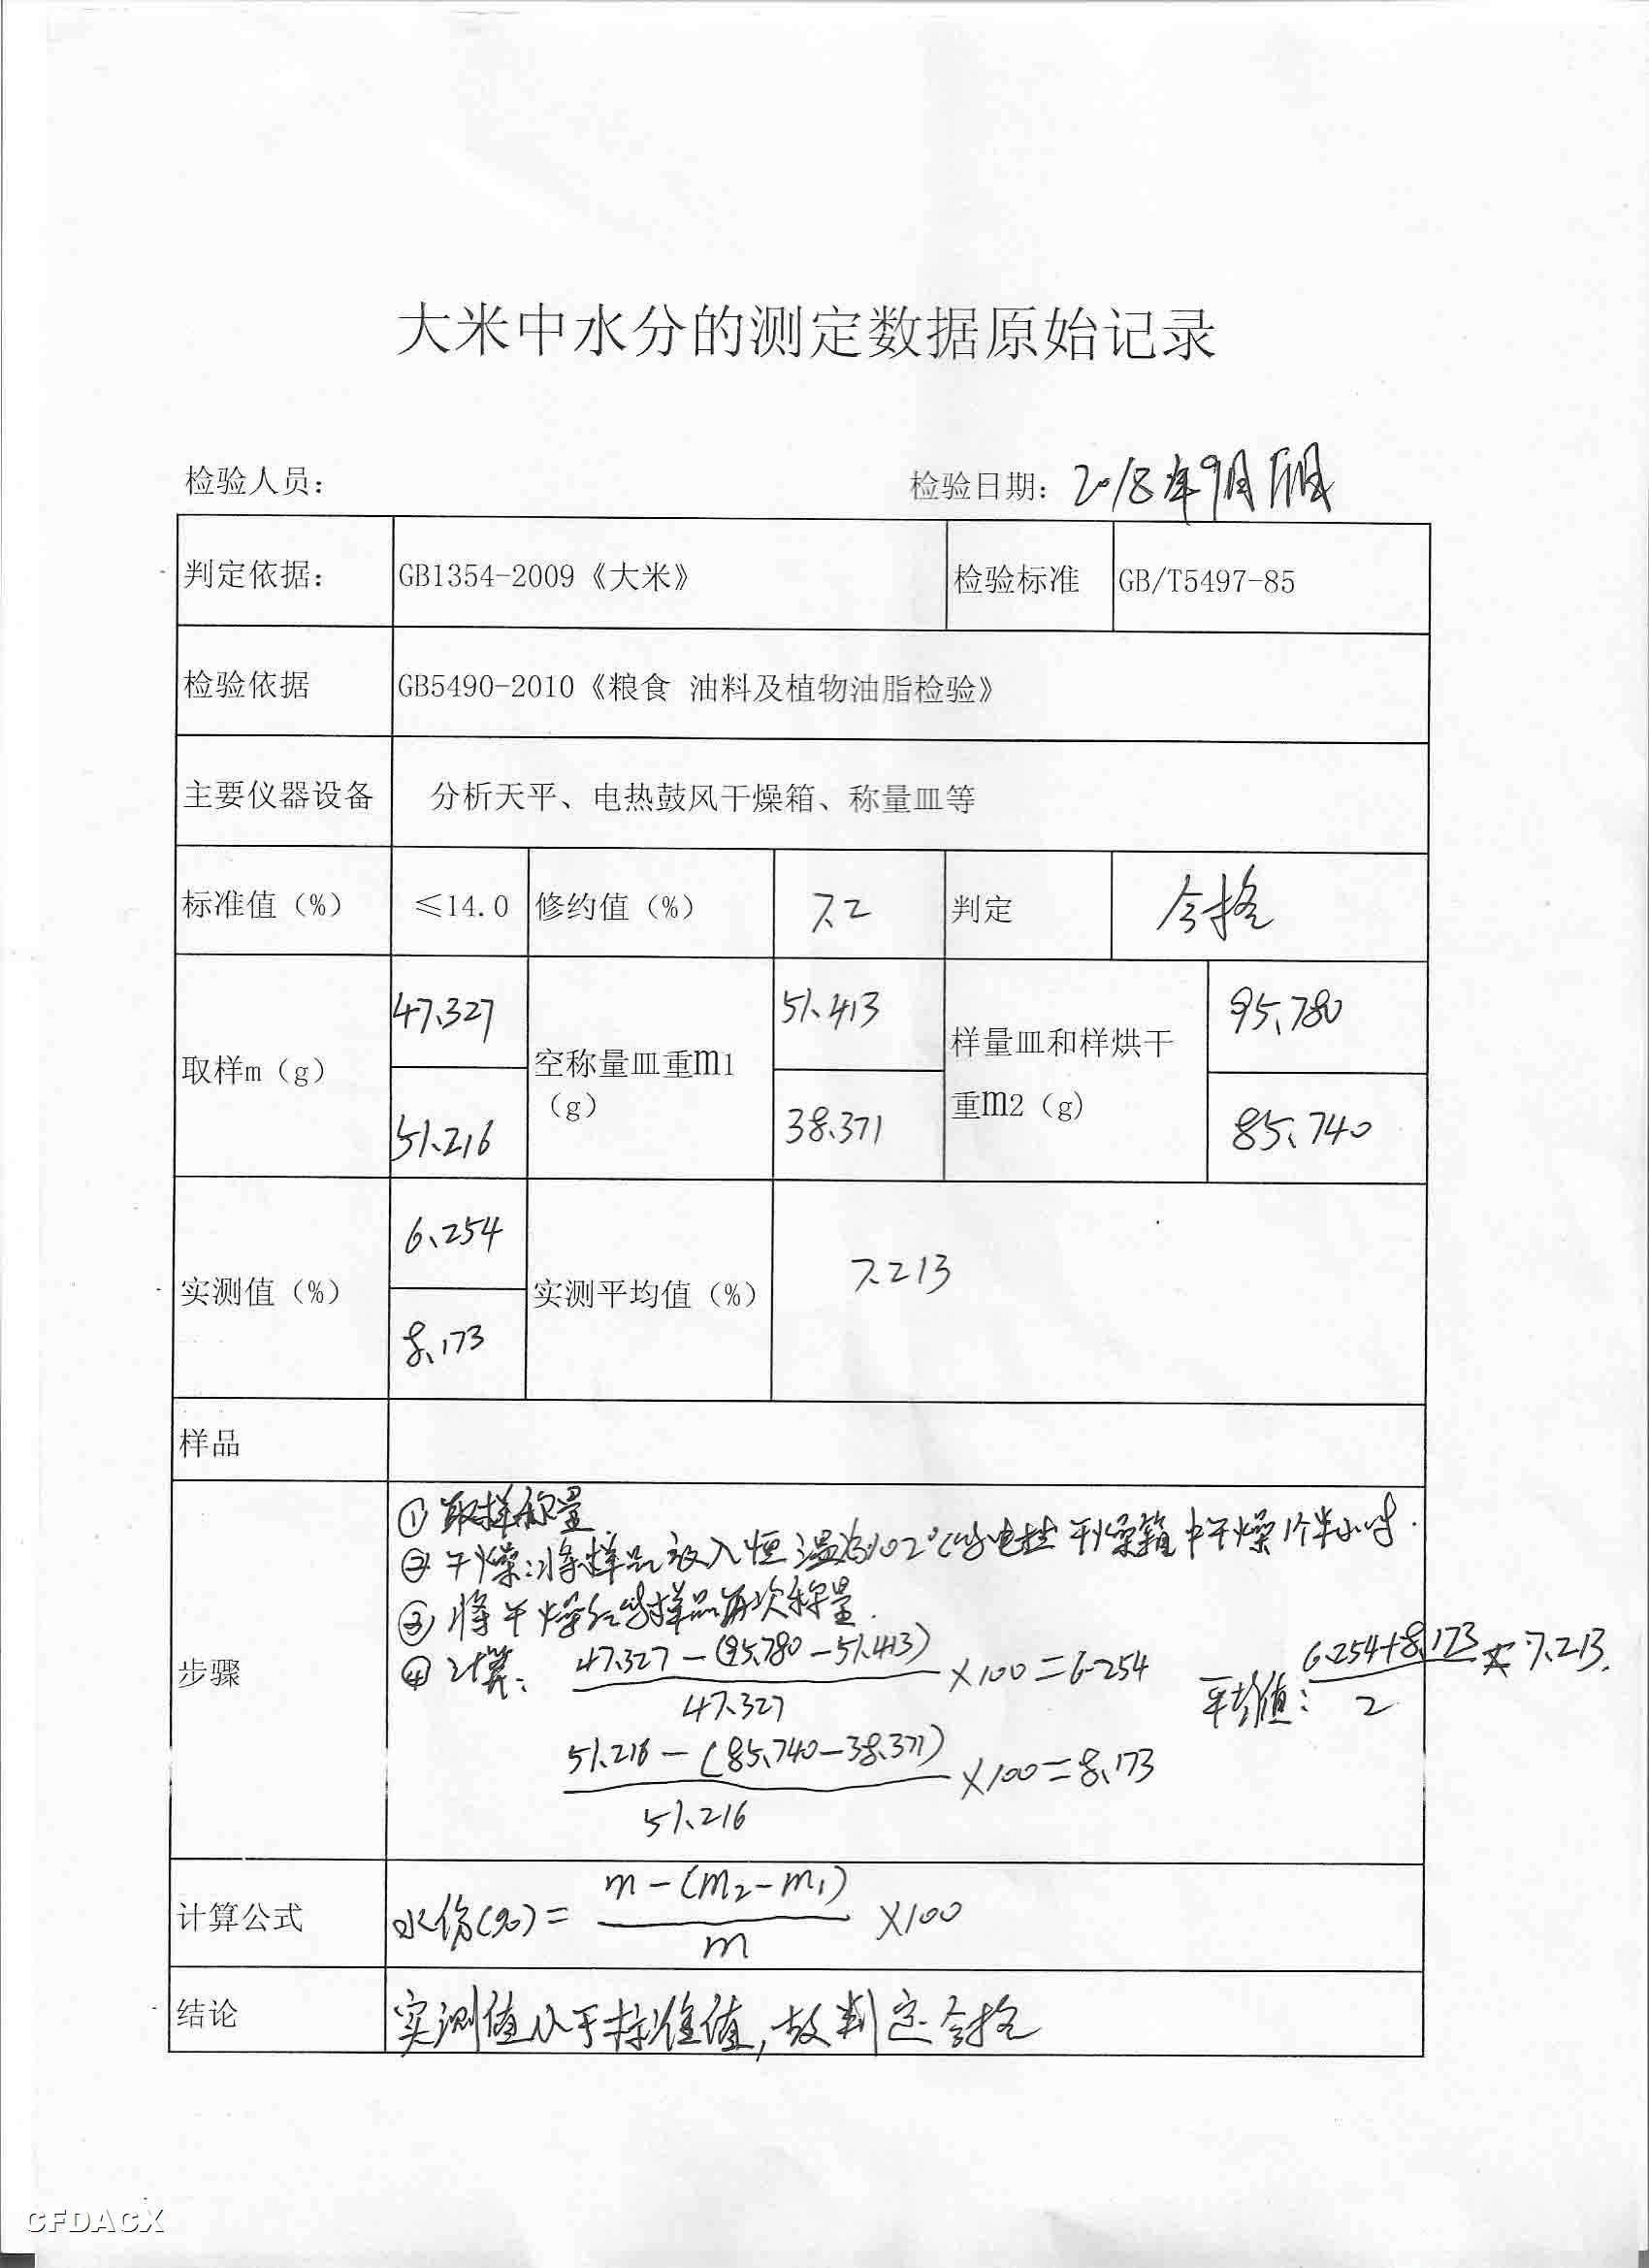 大米中水分的测定数据原始记录
检验人员：
检验日期：2018年9月
判定依据： GB1354-2009《大米》 检验标准 GB/T5497-85
检验依据 GB5490-2010《粮食 油料及植物油脂检验》
主要仪器设备 分析天平、电热鼓风干燥箱、称量皿等
标准值（%） ≤14.0 修约值（%） 7.2 判定 合格
47.327 51.413 95.780
取样m（g） 空称量皿重m1（g） 样量皿和样烘干重m2（g）
51.216 38.371 85.740
6.254
实测值（%） 实测平均值（%） 7.213
8.173
样品
步骤
①取样称量
②干燥：将样品放入恒温为102℃的电热干燥箱中干燥1个半小时.
③将干燥后的样品再次称量.
④计算： 47.327-(95.780-51.413) / 47.327 ×100=6.254
平均值： 6.254+8.173 / 2 = 7.213.
51.216-(85.740-38.371) / 51.216 ×100=8.173
计算公式 水份(%)= m-(m2-m1) / m ×100
结论 实测值小于标准值,故判定合格
CFDACX